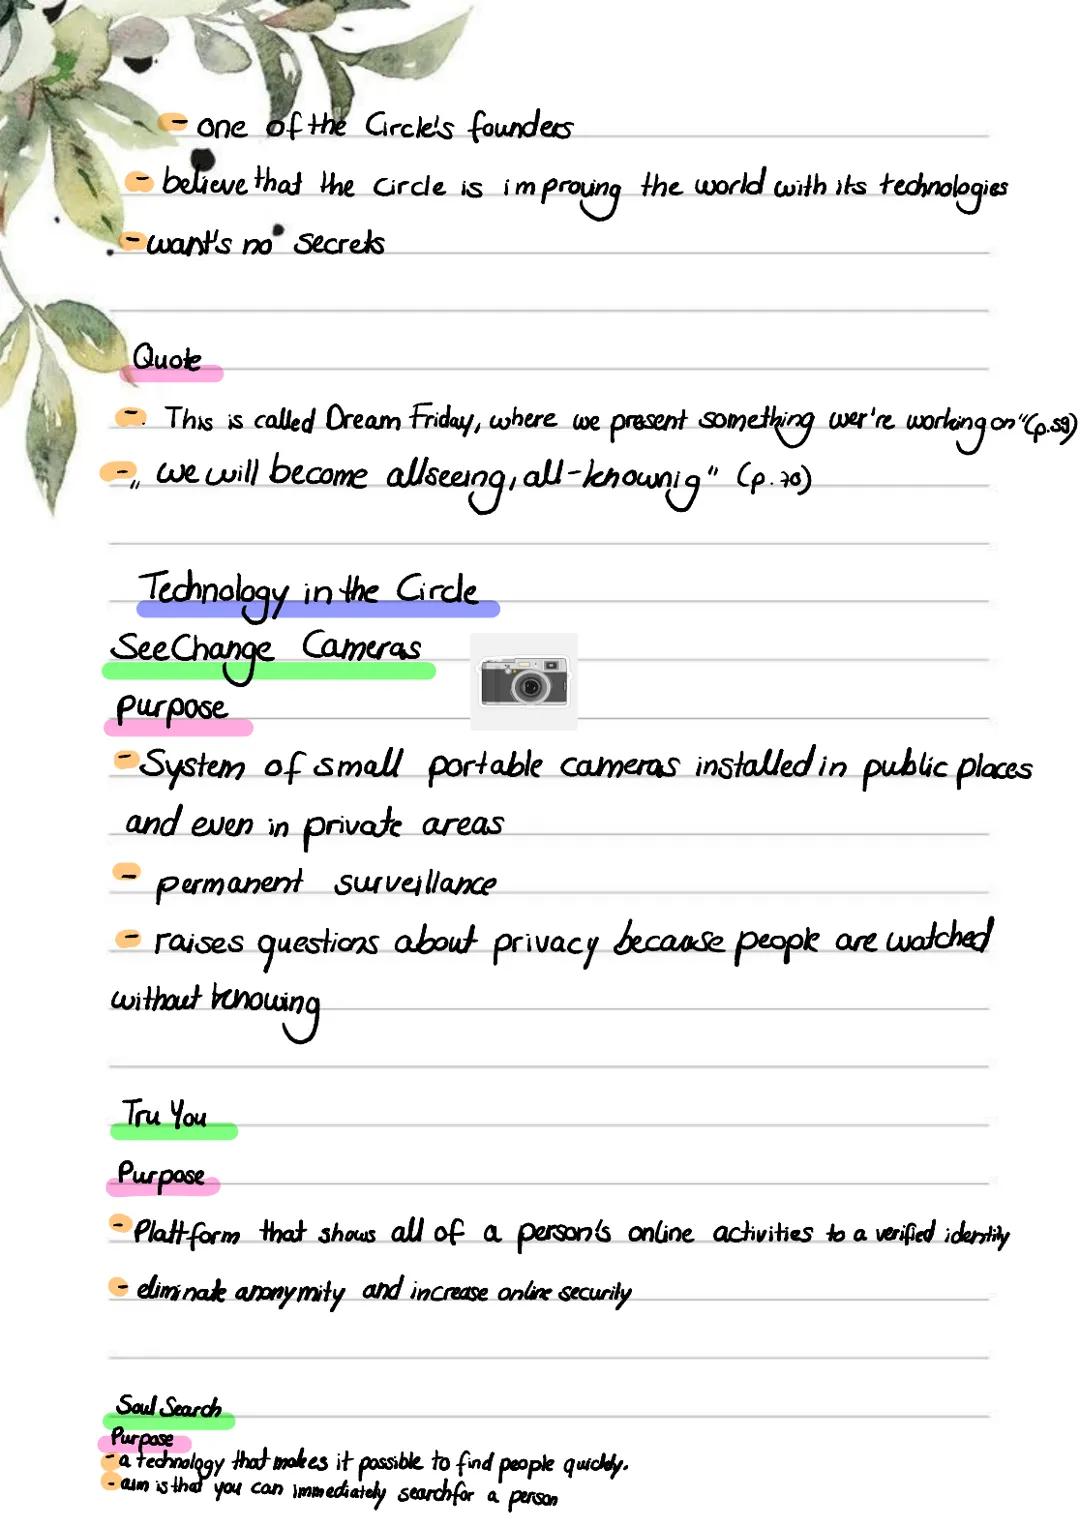 - one of the Circle's founders
- believe that the circle is improving the world with its technologies
- want's no secrets
Quote
- This is called Dream Friday, where we present something wer're working on" (p.59)
- „ we will become allseeing, all-knownig" (p. 70)
Technology in the Circle
SeeChange Cameras
Purpose
- System of small portable cameras installed in public places
and even in private areas
- permanent surveillance
- raises questions about privacy because people are watched
without knowing
Tru You
Purpose
- Plattform that shows all of a person's online activities to a verified identity
- eliminate anonymity and increase online security
Soul Search
Purpose
- a technology that makes it possible to find people quickly.
- aim is that you can immediately search for a person